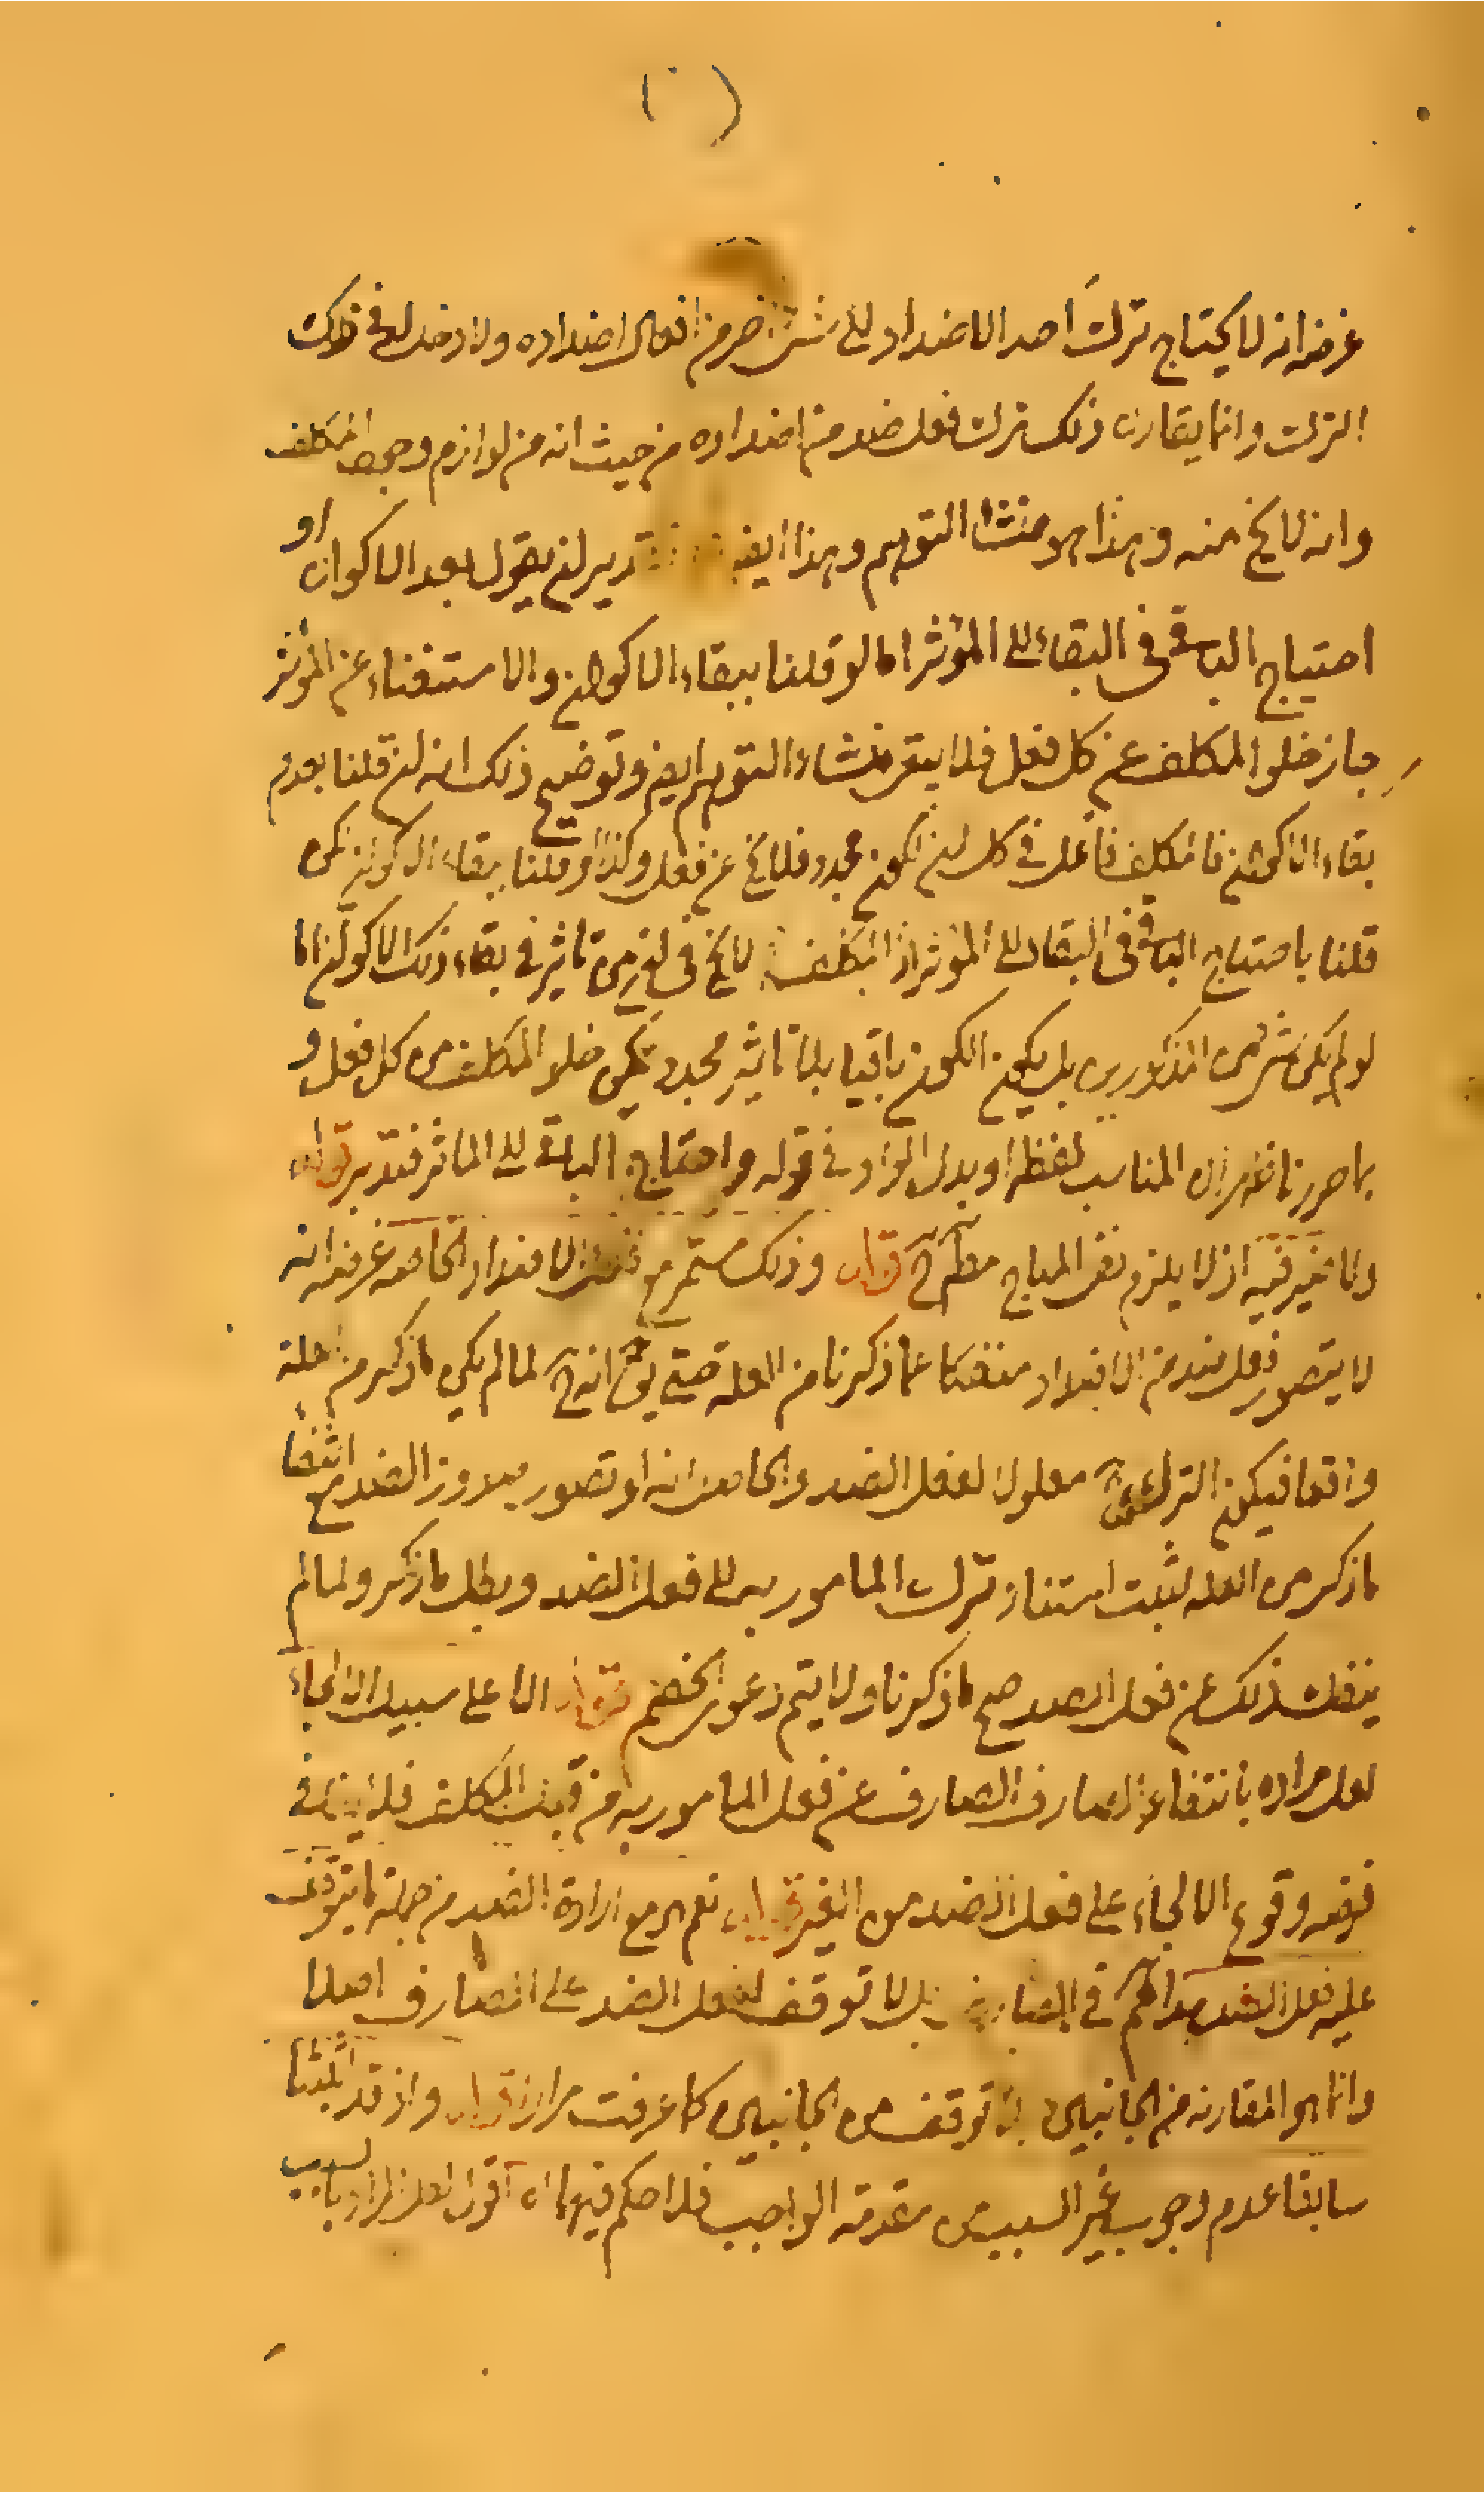 غرضه انه لا يحتاج ترك احد الاضداد الى شئ اخر من افعال اضداده ولا دخل له في ذلك
الترك وانما يقارن ذلك ترك فعل ضد من اضداده من حيث انه من لوازم وجود المكلف
وانه لا يخ منه وهذا هو منشا التوهم وهذا ايض تقدير ان يقول بعد الاكوان او
احتياج الباقى فى البقاء الى المؤثر اما لو قلنا ببقاء الاكوان والاستغناء عن المؤثر
جاز خلو المكلف عن كل فعل فلا يبقى منشاء التوهم ايض وتوضيح ذلك انه ان قلنا بعدم
بقاء الاكوان فالمكلف فاعل في كل ان لكون مجدد فلا يخ عن فعل وكذا لو قلنا ببقاء الاكوان لكن
قلنا باحتياج الباقى فى البقاء الى المؤثر اذ المكلف لا يخ في ان من تاثير في بقاء ذلك الاكوان اما
لو لم يكن شئ من المذكورين بل يكون الكون باقيا بلا تاثير مجدد يمكن خلو المكلف من كل فعل و
بما حررنا ظهر ان المناسب لفظ او بدل الواو في قوله واحتياج الباقي الى المأثر فتدبر قوله
ولا ضير فيه اذ لا يلزم نفى المباح مط ح قوله وذلك مستمر مع فعل الاضداد الخاصه غرضه انه
لا يتصور فعل ضد من الاضداد منفكا عما ذكرنا من العله حتى يق انه ح لما لم يكن ما ذكر من العلة
واقعا فيكون الترك معلولا لفعل الضد والحاصل انه لو تصور صدور الضد مع انتفا
ما ذكر من العله لثبت استناد ترك المامور به الى فعل الضد وبطل ما ذكر ولما لم
ينفك ذلك عن فعل الضد صح ما ذكرنا ولا يتم دعوى الخصم قوله الا على سبيل الالجاء
لعل مراده بانتفاء الصارف الصارف عن فعل المامور به من قبل المكلف فلا ينافى
فرضه وقوع الالجاء على فعل الضد من الغير قوله نعم هو مع ارادة الضد من جملة ما يتوقف
عليه فعل الضد هذا حكم في الصارف بل لا توقف لفعل الضد على الصارف اصلا
وانما هو المقارنه من الجانبين لا توقف من الجانبين كما عرفت مرارا قوله واذ قد اثبتنا
سابقا عدم وجوب غير السبب من مقدمة الواجب فلا حكم فيهما اه اقول لعل المراد بالسبب